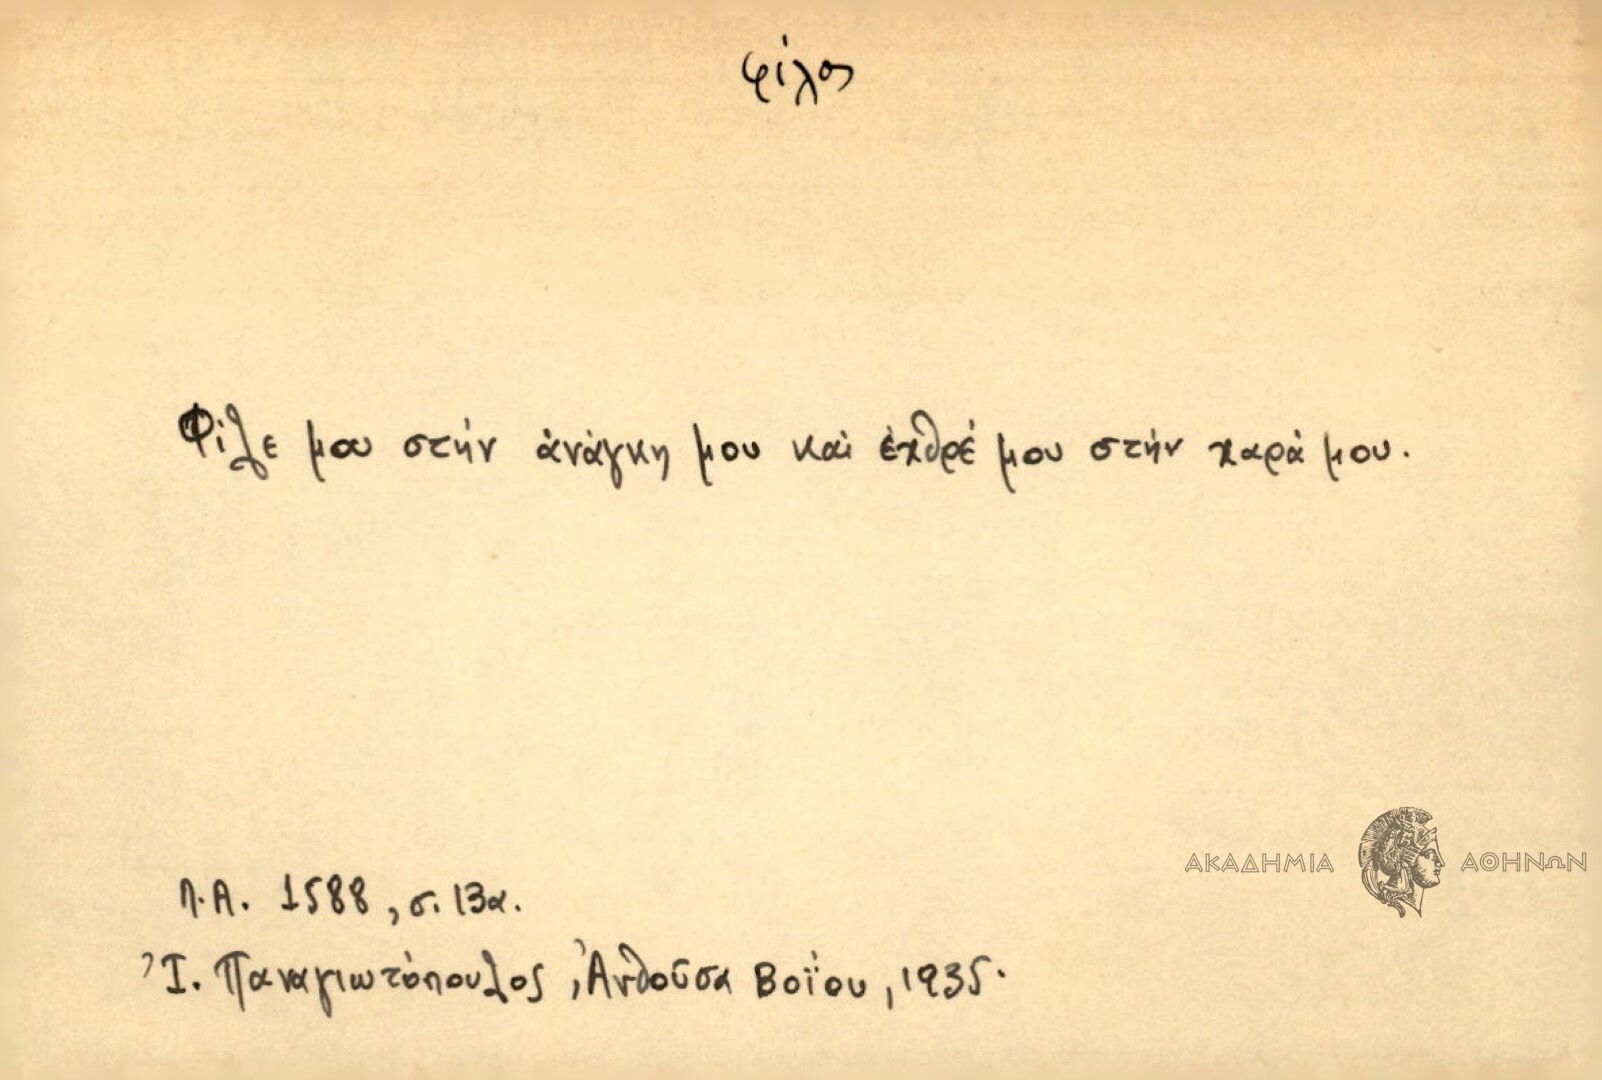 φίλος
Φίλε μου στήν ἀνάγκη μου καί ἐχθρέ μου στήν χαρά μου.
ΑΚΑΔΗΜΙΑ ΑΘΗΝΩΝ
Λ.Α. 1588, σ. 13α.
Ἰ. Παναγιωτόπουλος, Ἀνθοῦσα Βοΐου, 1935.